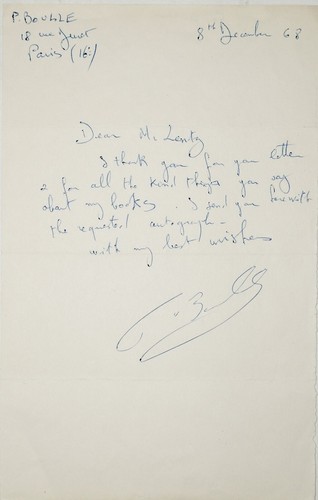 P. BOULLE
18 rue Duret
Paris (16e)
8th December 68
Dear Mr
I thank you for your letter
& for all the kind things you say
about my books. I send you herewith
the requested autograph -
with my best wishes
P. Boulle